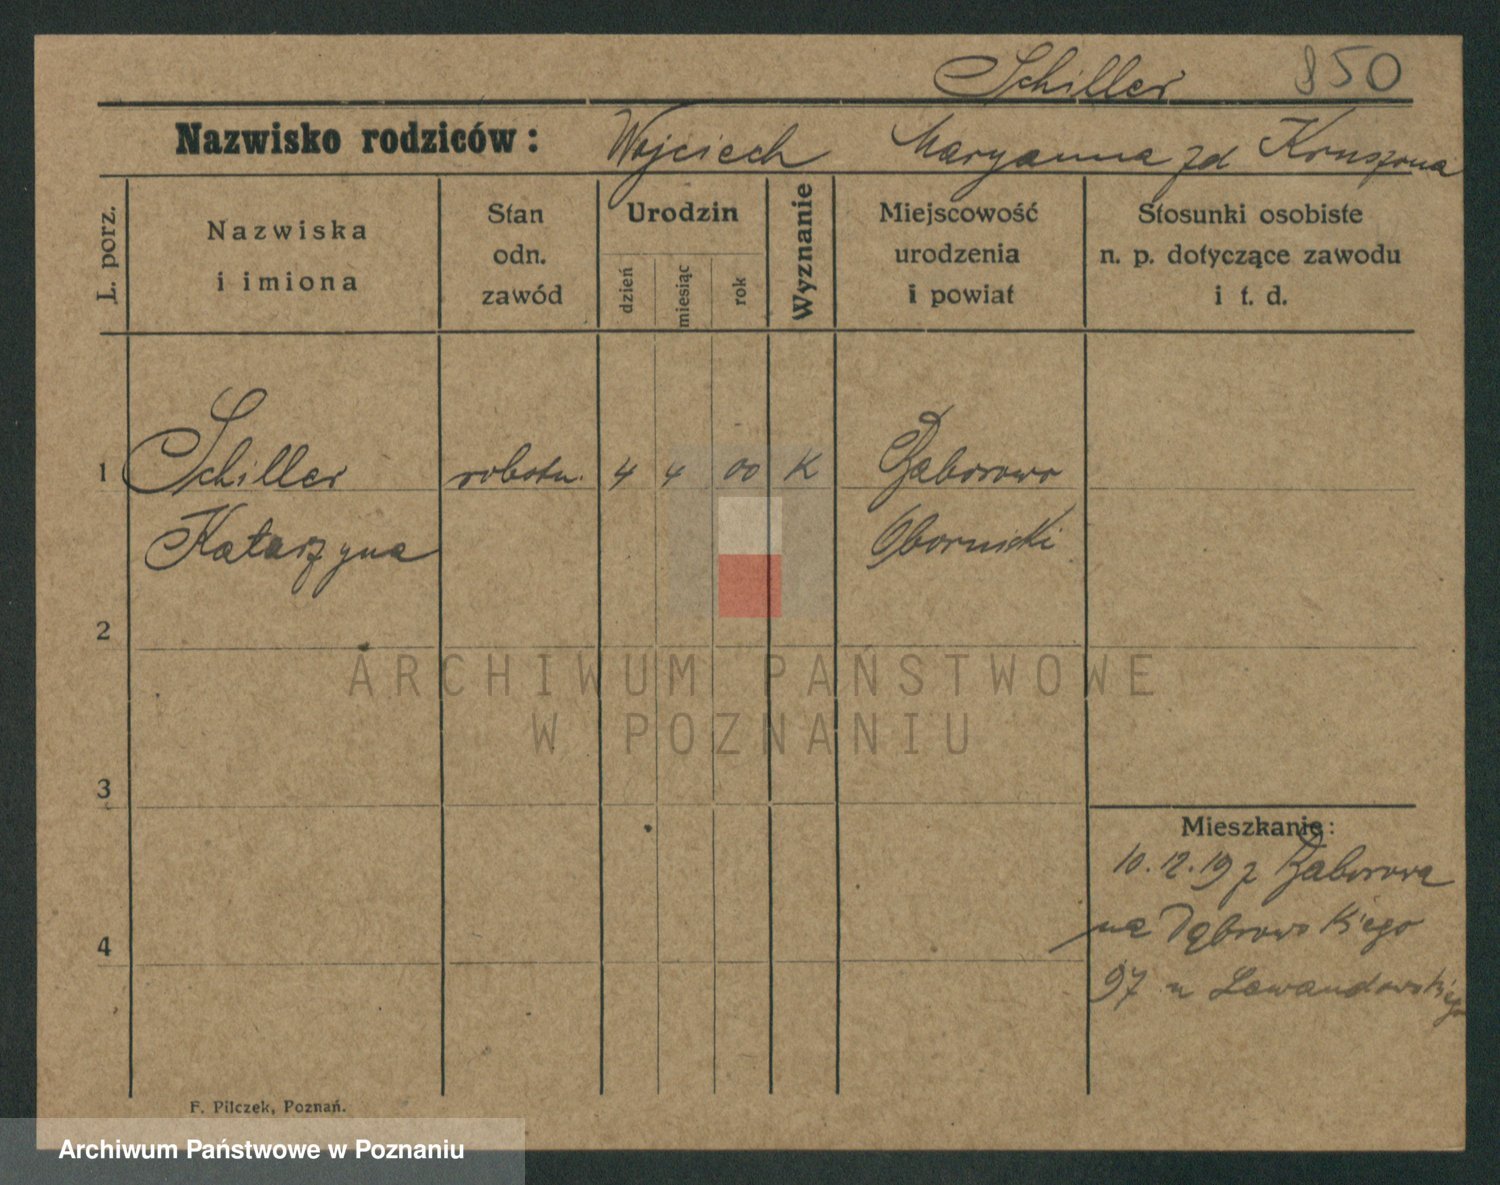 Schiller 850
Nazwisko rodziców: Wojciech Maryanna zd Kruszona
L. porz.
Nazwiska
i imiona
Stan
odn.
zawód
Urodzin
dzień
miesiąc
rok
Wyznanie
Miejscowość
urodzenia
i powiat
Stosunki osobiste
n. p. dotyczące zawodu
i t. d.
1 Schiller robotn. 4 4 00 K Baborowo
Katarzyna Obornicki
2
ARCHIWUM PAŃSTWOWE
W POZNANIU
3
Mieszkanie:
10.12.19 z Baborowa
na Dąbrowskiego
4
97 u Lewandowskiego
F. Pilczek, Poznań.
Archiwum Państwowe w Poznaniu